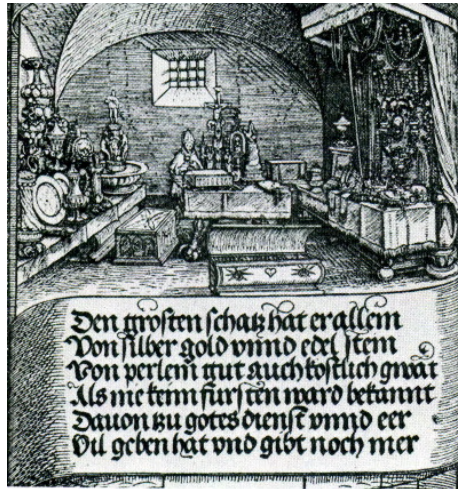 Den grosten schatz hat er allein
Von silber gold vnnd edel stein
Von perlein gut auch kostlich gwat
Als nie keim fursten ward bekannt
Dauon zu gotes dienst vnnd eer
Vil geben hat vnd gibt noch mer